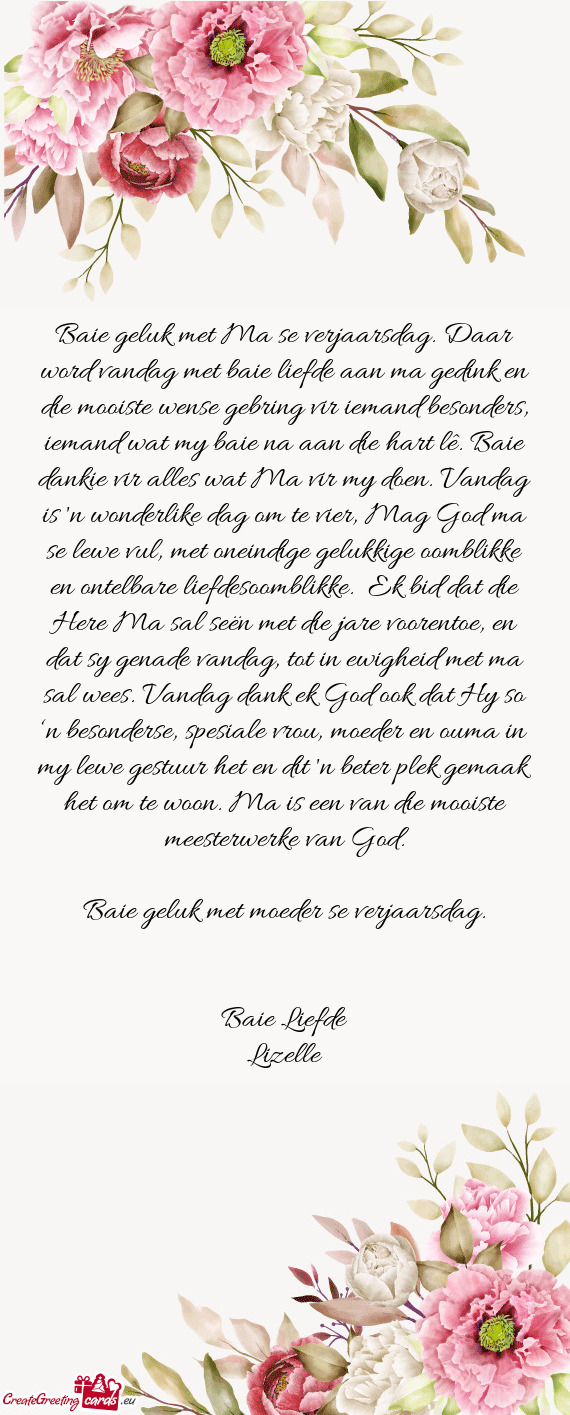 Baie geluk met Ma se verjaarsdag. Daar
word vandag met baie liefde aan ma gedink en
die mooiste wense gebring vir iemand besonders,
iemand wat my baie na aan die hart lê. Baie
dankie vir alles wat Ma vir my doen. Vandag
is 'n wonderlike dag om te vier, Mag God ma
se lewe vul, met oneindige gelukkige oomblikke
en ontelbare liefdesoomblikke. Ek bid dat die
Here Ma sal seën met die jare voorentoe, en
dat sy genade vandag, tot in ewigheid met ma
sal wees. Vandag dank ek God ook dat Hy so
‘n besonderse, spesiale vrou, moeder en ouma in
my lewe gestuur het en dit 'n beter plek gemaak
het om te woon. Ma is een van die mooiste
meesterwerke van God.
Baie geluk met moeder se verjaarsdag.
Baie Liefde
Lizelle
CreateGreeting cards .eu